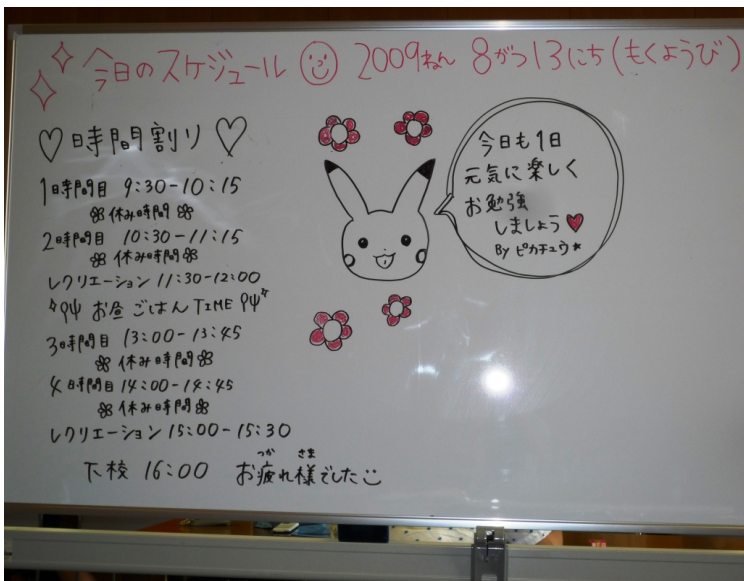 今日のスケジュール 2009ねん 8がつ13にち(もくようび)
♡時間割り♡
1日時間目 9:30-10:15
休み時間
2時間目 10:30-11:15
休み時間
レクリエーション 11:30-12:00
お昼ごはんTIME
3時間目 13:00-13:45
休み時間
4時間目 14:00-14:45
休み時間
レクリエーション 15:00-15:30
下校 16:00 お疲れ様でした
つか さま
今日も1日
元気に楽しく
お勉強
しましょう♥
By ピカチュウ★